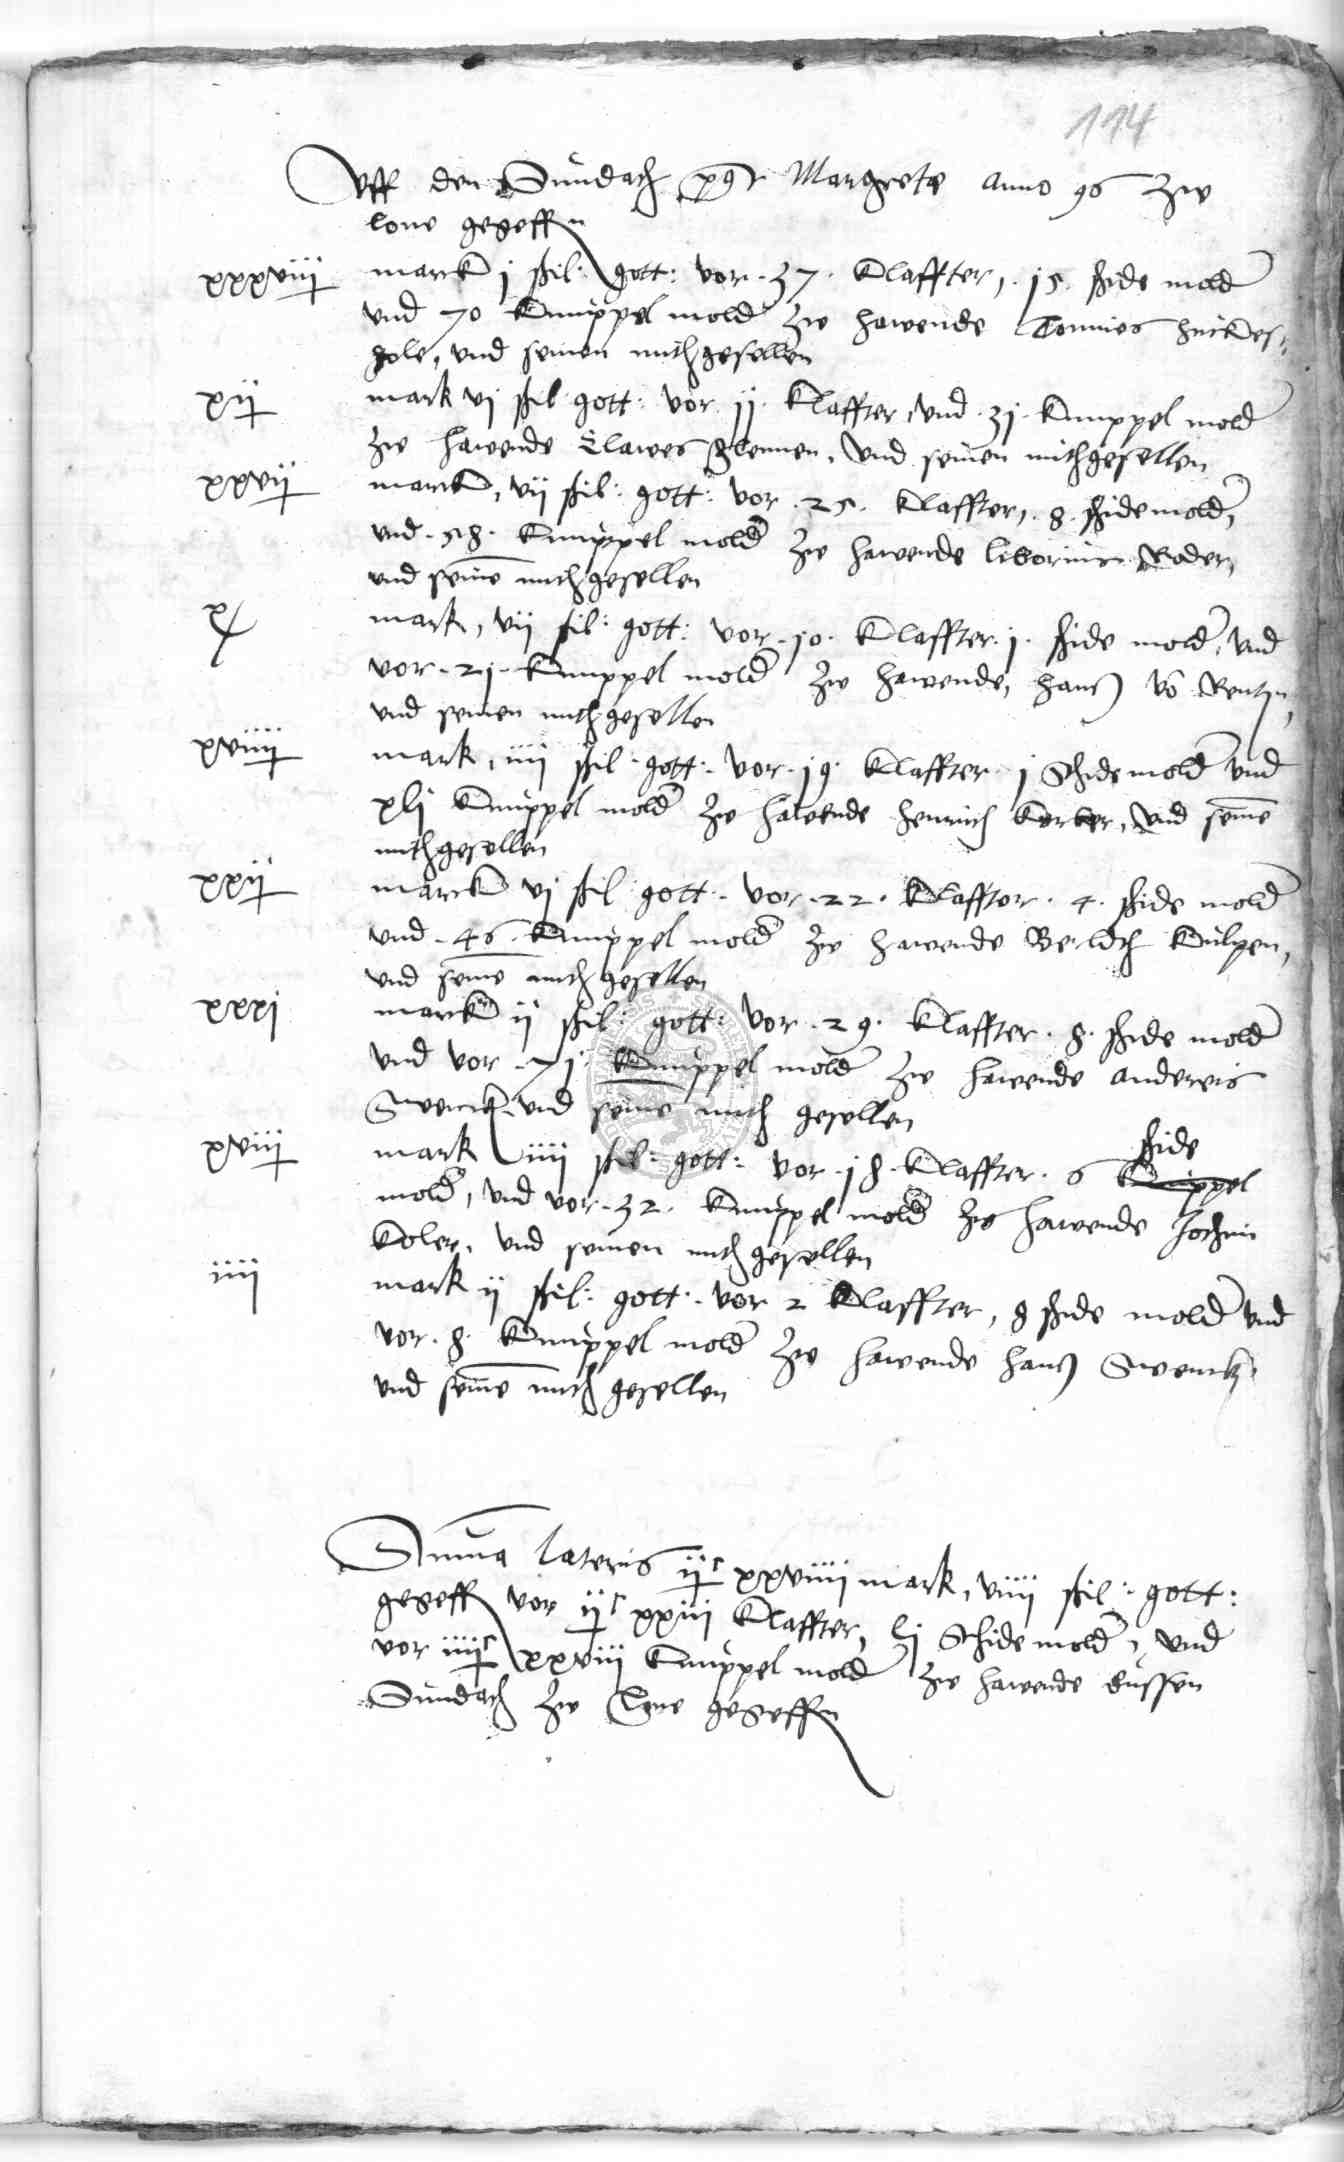 114
Uff den Sundach post Margrete anno 96 zw
lone gegeffen
xxxviij marck j schil: gott: vor 37 Klaffter, 15 schide mold
und 70 Knuppel mold zw hawende Tonnies
hole, und seinen mithgesellen
xij mark vj schil gott: vor jj Klaffter, und 3j Knuppel mold
zw hawende Clawes und seinen mithgesellen
xxvij marck, vij schil: gott: vor 25 Klaffter, 8 schidemold,
und 58 Knuppel mold zw hawende liborius Roder,
und seine mithgesellen
x mark, vij schil: gott: vor j0 Klaffter j schide mold, und
vor 2j Knuppel mold zw hawende, hans vo Rentzn,
und seinen mithgesellen
xviiij mark, iiij schil gott: vor j9 Klaffter j Schidemold und
xlj Knuppel mold zw hawende henrich Korber, und seine
mithgesellen
xxij marck vj schil gott vor 22 Klaffter 4 schide mold
und 46 Knuppel mold zw hawende Berldt Kulpen,
und seine mithgesellen
xxxj marck ij schil: gott: vor 29 Klaffter 8 schide mold
und vor 7j Knuppel mold zw hawende andereis
Swenck und seine mith gesellen
xviij mark iiij schil: gott: vor j8 Klaffter 6 schide
Knuppel
mold, und vor 32 Knuppel mold zw hawende Jochim
Koler, und seinen mithgesellen
iiij mark ij schil: gott: vor 2 Klaffter, 8 schide mold und
vor 8 Knuppel mold zw hawende hans Swenck
und seine mith gesellen
Summa lateris ijc xxviiij mark, viiij schil: gott:
gegeffen vor ijc xxiij Klaffter, lj Schide mold, und
vor iiijc xxviij Knuppel mold zw hawende dussen
Sundach zw lone gegeffen